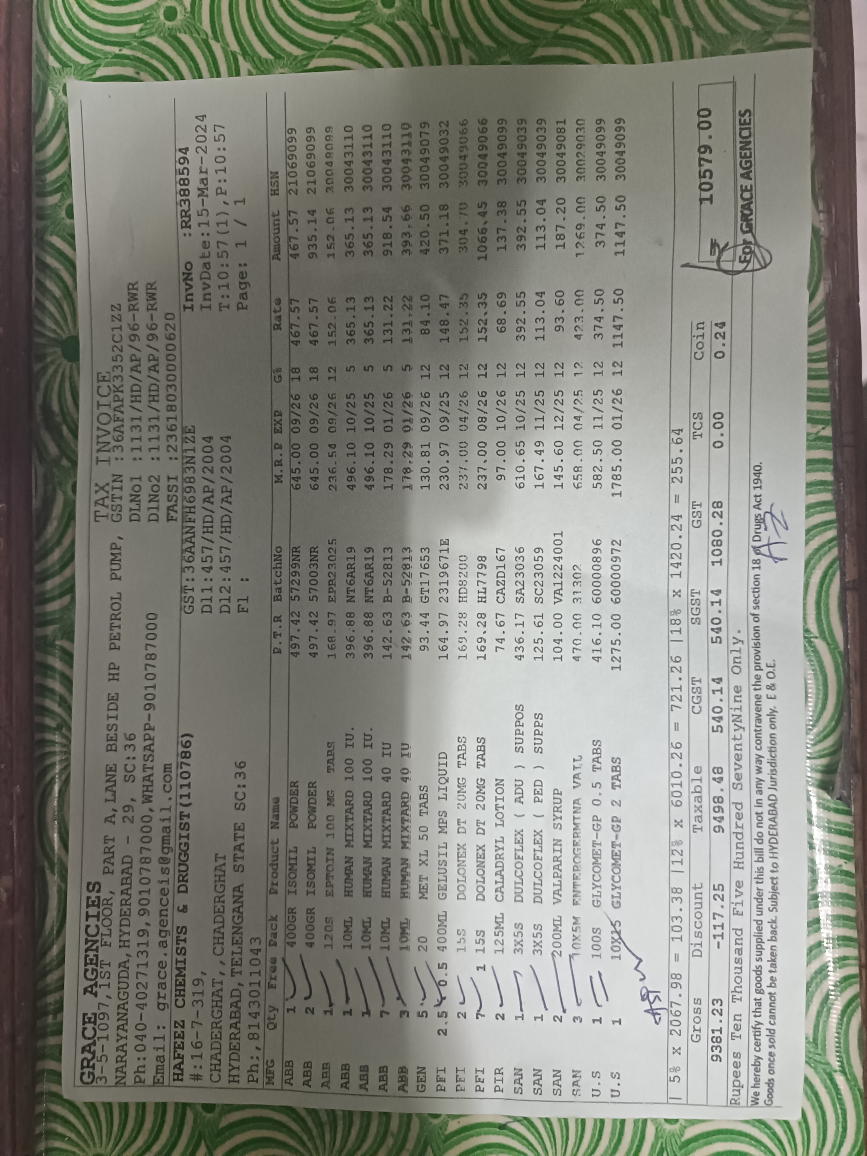 GRACE AGENCIES
3-5-1097,1ST FLOOR, PART A,LANE BESIDE HP PETROL PUMP,
NARAYANAGUDA,HYDERABAD - 29, SC:36
Ph:040-40271319,9010787000,WHATSAPP-9010787000
Email: grace.agenceis@gmail.com
TAX INVOICE
GSTIN :36AFAPK3352C1ZZ
DLNo1 :1131/HD/AP/96-RWR
DlNO2 :1131/HD/AP/96-RWR
FASSI :23618030000620
HAFEEZ CHEMISTS & DRUGGIST(110786)
#:16-7-319,
CHADERGHAT,,CHADERGHAT
HYDERABAD,TELENGANA STATE SC:36
Ph:,8143011043
GST:36AANFH6983N1ZE
D11:457/HD/AP/2004
D12:457/HD/AP/2004
Fl :
InvNo :RR388594
InvDate:15-Mar-2024
T:10:57(1),P:10:57
Page: 1 / 1
MFG Qty Free Pack Product Name P.T.R BatchNo M.R.P EXP G% Rate Amount HSN
ABB 1 400GR ISOMIL POWDER 497.42 57299NR 645.00 09/26 18 467.57 467.57 21069099
ABB 2 400GR ISOMIL POWDER 497.42 57003NR 645.00 09/26 18 467.57 935.14 21069099
ABB 1 120S EPTOIN 100 MG TABS 168.97 EPR23025 236.54 09/26 12 152.06 152.06 30049099
ABB 1 10ML HUMAN MIXTARD 100 IU. 396.88 NT6AR19 496.10 10/25 5 365.13 365.13 30043110
ABB 1 10ML HUMAN MIXTARD 100 IU. 396.88 NT6AR19 496.10 10/25 5 365.13 365.13 30043110
ABB 7 10ML HUMAN MIXTARD 40 IU 142.63 B-52813 178.29 01/26 5 131.22 918.54 30043110
ABB 3 10ML HUMAN MIXTARD 40 IU 142.63 B-52813 178.29 01/26 5 131.22 393.66 30043110
GEN 5 20 MET XL 50 TABS 93.44 GT17653 130.81 09/26 12 84.10 420.50 30049079
PFI 2.5 0.5 400ML GELUSIL MPS LIQUID 164.97 2319671E 230.97 09/25 12 148.47 371.18 30049032
PFI 2 15S DOLONEX DT 20MG TABS 169.28 HD8200 237.00 04/26 12 152.35 304.70 30049066
PFI 7 1 15S DOLONEX DT 20MG TABS 169.28 HL7798 237.00 08/26 12 152.35 1066.45 30049066
PIR 2 125ML CALADRYL LOTION 74.67 CAZD167 97.00 10/26 12 68.69 137.38 30049099
SAN 1 3X5S DULCOFLEX ( ADU ) SUPPOS 436.17 SA23036 610.65 10/25 12 392.55 392.55 30049039
SAN 1 3X5S DULCOFLEX ( PED ) SUPPS 125.61 SC23059 167.49 11/25 12 113.04 113.04 30049039
SAN 2 200ML VALPARIN SYRUP 104.00 VA1224001 145.60 12/25 12 93.60 187.20 30049081
SAN 3 10X5M ENTEROGERMINA VAIL 470.00 31302 658.00 04/25 12 423.00 1269.00 30029030
U.S 1 100S GLYCOMET-GP 0.5 TABS 416.10 60000896 582.50 11/25 12 374.50 374.50 30049099
U.S 1 10X15 GLYCOMET-GP 2 TABS 1275.00 60000972 1785.00 01/26 12 1147.50 1147.50 30049099
| 5% x 2067.98 = 103.38 |12% x 6010.26 = 721.26 |18% x 1420.24 = 255.64
Gross Discount Taxable CGST SGST GST TCS Coin
9381.23 -117.25 9498.48 540.14 540.14 1080.28 0.00 0.24
10579.00
Rupees Ten Thousand Five Hundred SeventyNine Only.
For GRACE AGENCIES
We hereby certify that goods supplied under this bill do not in any way contravene the provision of section 18 of Drugs Act 1940.
Goods once sold cannot be taken back. Subject to HYDERABAD Jurisdiction only. E & O.E.